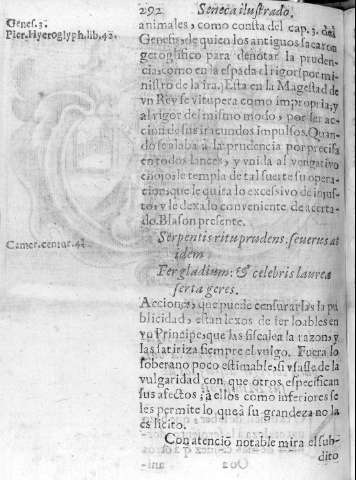 292 Seneca ilustrado.
Genes. 3.
Pier. Hyeroglyph. lib. 42.
animales, como consta del cap. 3. del
Genesis, de quien los antiguos sacaron
geroglifico para denotar la pruden
cia, como en la espada el rigor (por mi
nistro de la ira.) Esta en la Magestad de
vn Rey se vitupera como impropia, y
al rigor del mismo modo, por ser ac
cion de sus iracundos impulsos. Quan
do se alaba à la prudencia por precisa
en todos lances, y vnida al vengativo
enojo, le templa de tal suerte su opera
cion, que le quita lo excessivo de injus
to, y le dexa lo conveniente de acerta-
do. Blason presente.
Serpentis ritu prudens, severus at
idem
Camer. centur. 4.
Per gladium: & celebris laurea
serta geres.
Acciones, que puede censurarlas la pu
blicidad, estan lexos de ser loables en
vn Principe, que las fiscalea la razon, y
las satiriza siempre el vulgo. Fuera lo
soberano poco estimable, si vsasse de la
vulgaridad con que otros especifican
sus afectos; à ellos como inferiores se
les permite lo que à su grandeza no la
es licito.
Con atenciō notable mira el sub-
dito